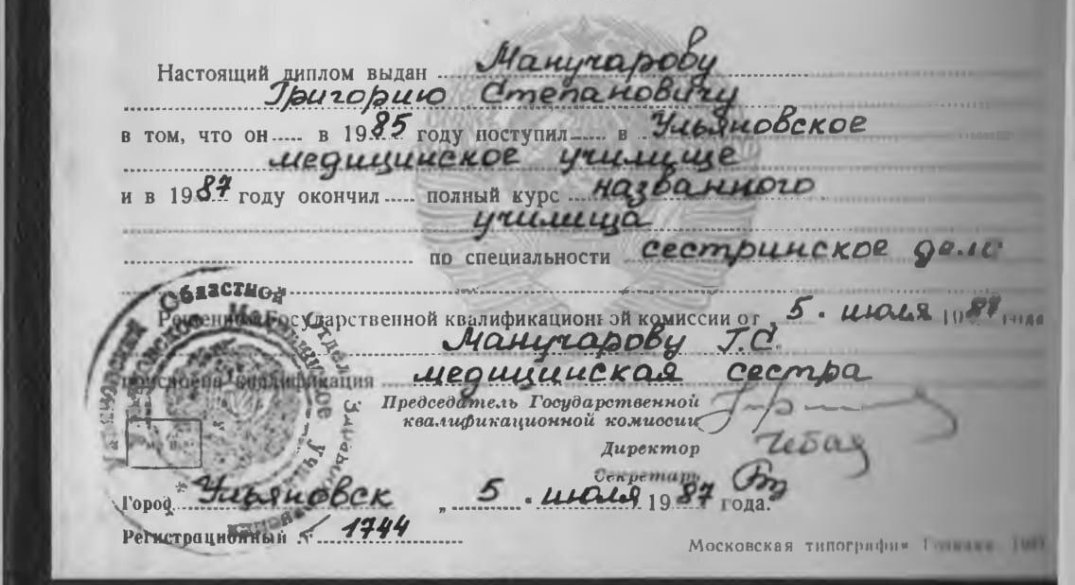 Настоящий диплом выдан Манучарову
Григорию Степановичу
в том, что он в 1985 году поступил в Ульяновское
медицинское училище
и в 1987 году окончил полный курс названного
училища
по специальности сестринское дело
Решением Государственной квалификационной комиссии от „ 5 " июля 1987 года
Манучарову Г.С.
присвоена квалификация медицинская сестра
Председатель Государственной
квалификационной комиссии
Директор
Секретарь
Город Ульяновск „ 5 " июля 1987 года.
Регистрационный № 1744
Московская типография Гознака.